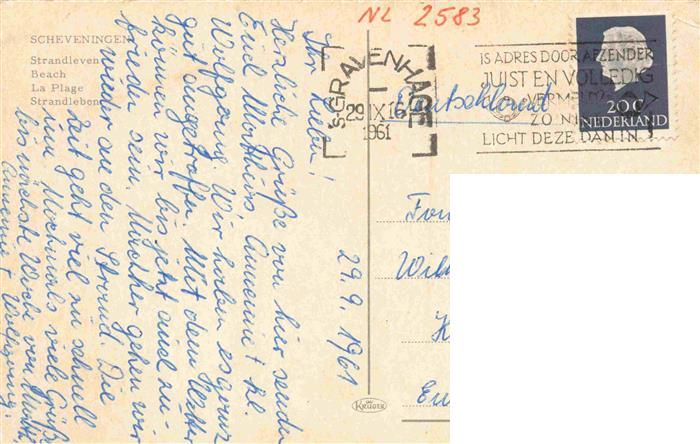 NL 2583
SCHEVENINGEN
Strandleven
Beach
La Plage
Strandleben
's-GRAVENHAGE
29 IX 16
1961
IS ADRES DOOR AFZENDER
JUIST EN VOLLEDIG
VERMELD?
ZO NI
LICHT DEZE DAN IN
20 C
NEDERLAND
Deutschland
29.9.1961
Ihr Lieben!
Herzliche Grüße von hier senden
Euch Matthias, Annemie + Kl.
Wolfgang. Wir haben es ganz
gut angetroffen. Mit dem Wetter
können wir bis jetzt auch zu-
frieden sein. Nachher gehen wir
wieder an den Strand. Die
Zeit geht viel zu schnell
um. Nochmals viele Grüße
bis nächste Woche von
Annemie + Wolfgang.
Fa
Wil
H
Eu
KRÜGER